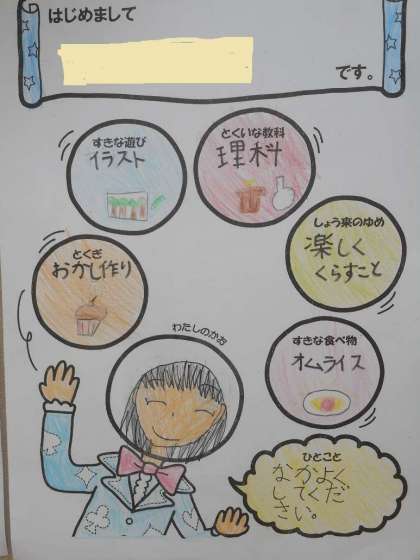 はじめまして
です。
すきな遊び
イラスト
とくいな教科
理科
しょう来のゆめ
楽しく
くらすこと
とくぎ
おかし作り
わたしのかお
すきな食べ物
オムライス
ひとこと
なかよく
してくだ
さい。